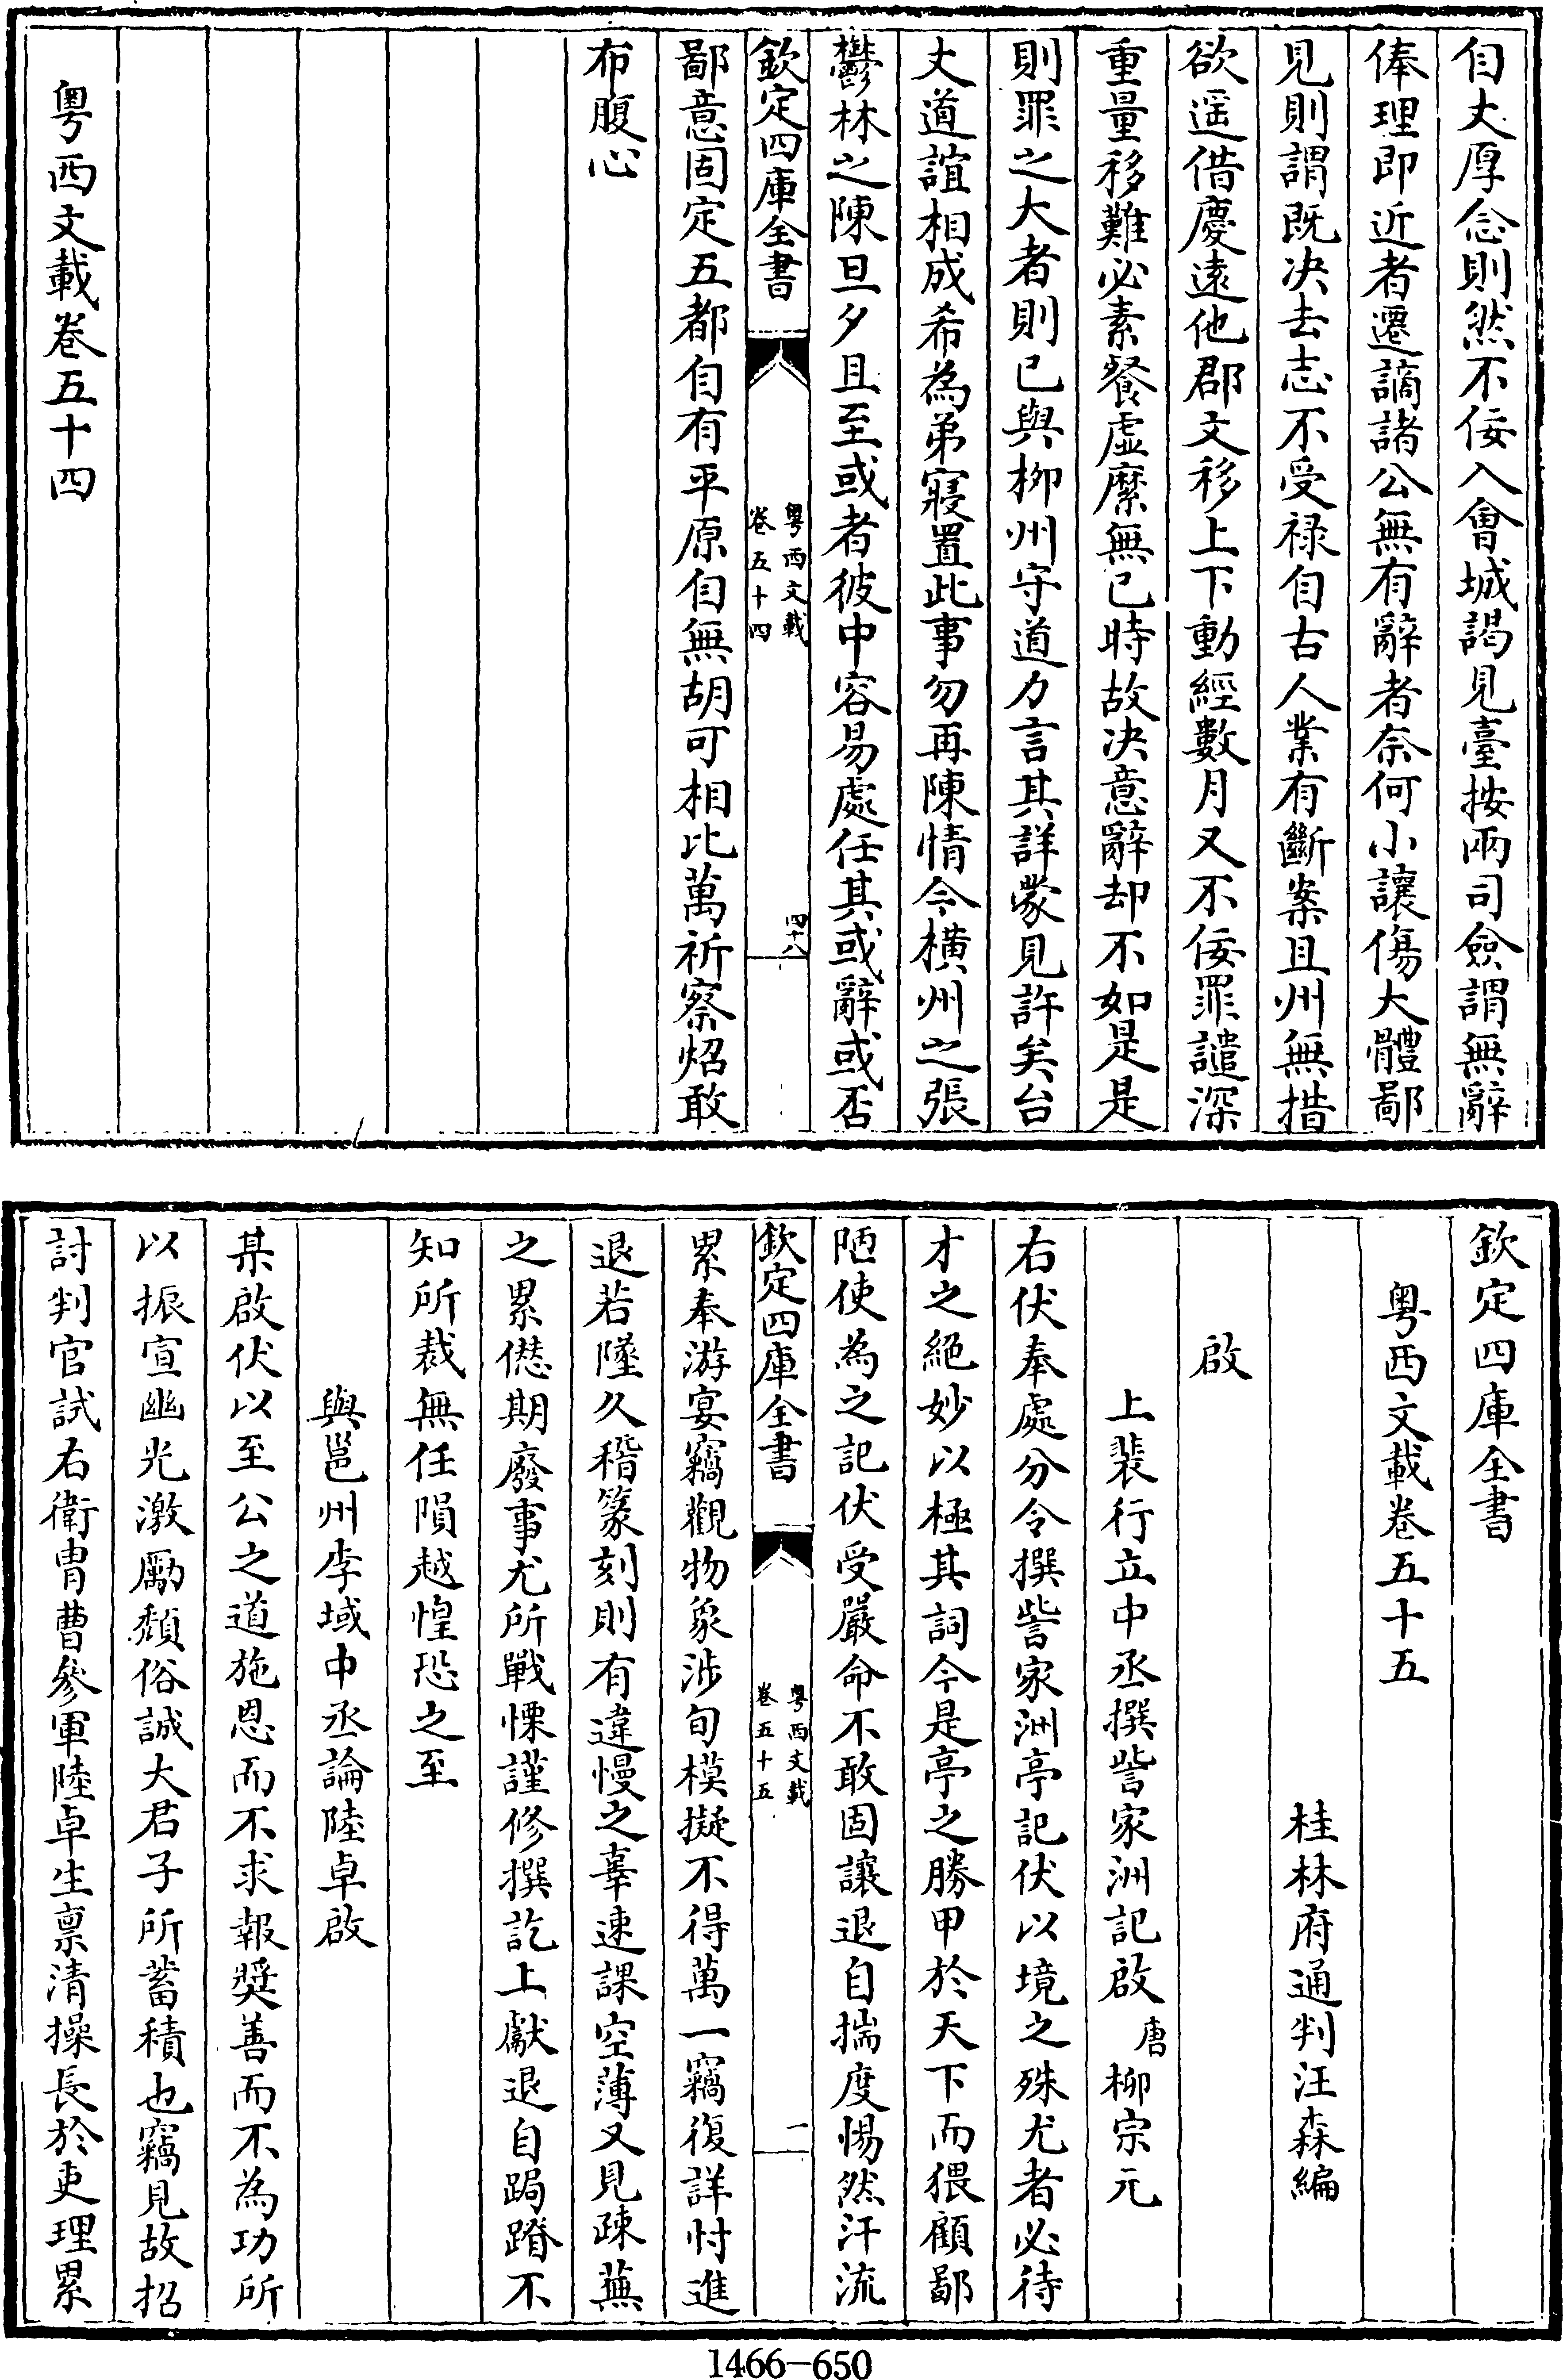 自丈厚念則然不佞入會城謁見臺按兩司僉謂無辭
俸理即近者遷謫諸公無有辭者奈何小讓傷大體鄙
見則謂既決去志不受祿自古人業有斷案且州無措
欲遥借慶遠他郡文移上下動經數月又不佞罪譴深
重量移難必素餐虛縻無已時故决意辭却不如是是
則罪之大者則已與柳州守道力言其詳蒙見許矣台
丈道誼相成希為弟寢置此事勿再陳情今橫州之張
鬱林之陳旦夕且至或者彼中容易處任其或辭或否
欽定四庫全書
粵西文載
卷五十四
四十八
鄙意固定五都自有平原自無胡可相比萬祈察炤敢
布腹心
粵西文載卷五十四
欽定四庫全書
粵西文載卷五十五
桂林府通判汪森編
啟
上裴行立中丞撰訾家洲記啟 唐 柳宗元
右伏奉處分令撰訾家洲亭記伏以境之殊尤者必待
才之絕妙以極其詞今是亭之勝甲於天下而猥顧鄙
陋使為之記伏受嚴命不敢固讓退自揣度惕然汗流
欽定四庫全書
粵西文載
卷五十五
一
累奉游宴竊觀物象涉旬模擬不得萬一竊復詳忖進
退若墜久稽篆刻則有違慢之辜速課空薄又見疎蕪
之累僁期廢事尤所戰慄謹修撰訖上獻退自跼蹐不
知所裁無任隕越惶恐之至
與邕州李域中丞論陸卓啟
某啟伏以至公之道施恩而不求報獎善而不為功所
以振宣幽光激勵頹俗誠大君子所蓄積也竊見故招
討判官試右衛胄曹參軍陸卓生禀清操長於吏理累
1466-650